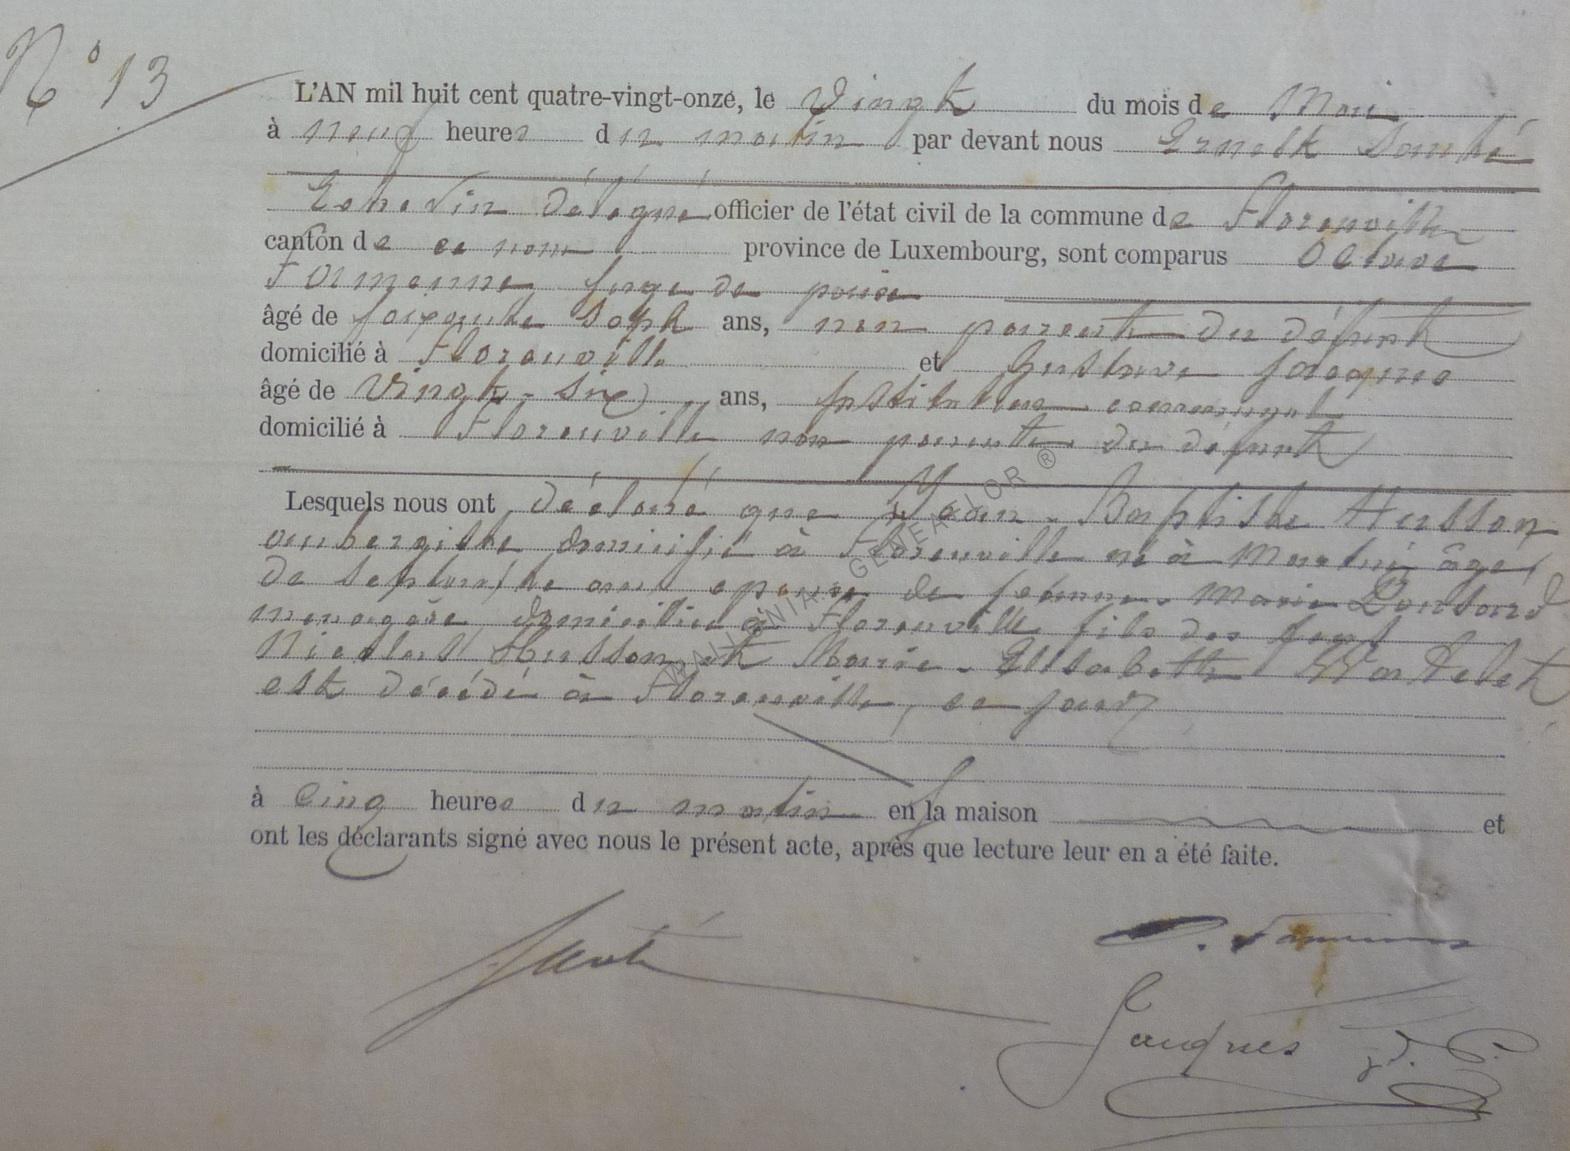 N° 13
L'AN mil huit cent quatre-vingt-onze, le Vingt du mois de Mai
à neuf heures du matin par devant nous Ernest
Echevin délégué officier de l'état civil de la commune de Florenville
canton de ce nom province de Luxembourg, sont comparus Octave
juge de paix
âgé de soixante Sept ans, non parent du défunt
domicilié à Florenville et Gustave Jacques
âgé de Vingt-six ans, Instituteur communal
domicilié à Florenville non parent du défunt
Lesquels nous ont déclaré que Jean-Baptiste Husson
aubergiste domicilié à Florenville né à âgé
de septante ans epoux de Jeanne-Marie
menagère domiciliée à Florenville fils des feus
Nicolas Husson et Marie-Elisabeth
est décédé à Florenville, ce jour
à Cinq heures du matin en la maison et
ont les déclarants signé avec nous le présent acte, après que lecture leur en a été faite.
WALLONIA GENEALOR ®
Jacques